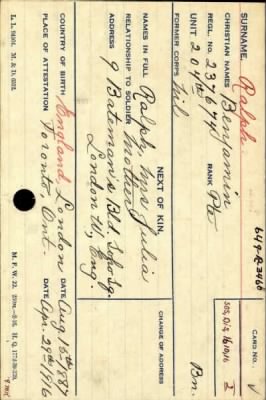 649-R-2460
CARD NO.
SURNAME. Ralph
CHRISTIAN NAMES Benjamin
REGL. NO. 237674 RANK Pte
UNIT 204th Bn.
FORMER CORPS Nil
S.O.S. Dis. 16/10/16
NEXT OF KIN.
CHANGE OF ADDRESS
NAMES IN FULL Ralph, Mrs Julia
RELATIONSHIP TO SOLDIER Mother
ADDRESS 9 Bateman's Bld. Soho Sq.
London W, Eng.
COUNTRY OF BIRTH England, London DATE Aug 16th 1887
PLACE OF ATTESTATION Toronto, Ont. DATE Apr. 29th 1916
M. F. W. 22.